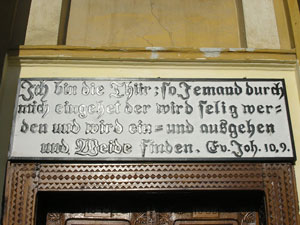 Ich bin die Thür; so Jemand durch
mich eingehet der wird selig wer-
den und wird ein- und ausgehen
und Weide finden. Ev. Joh. 10,9.